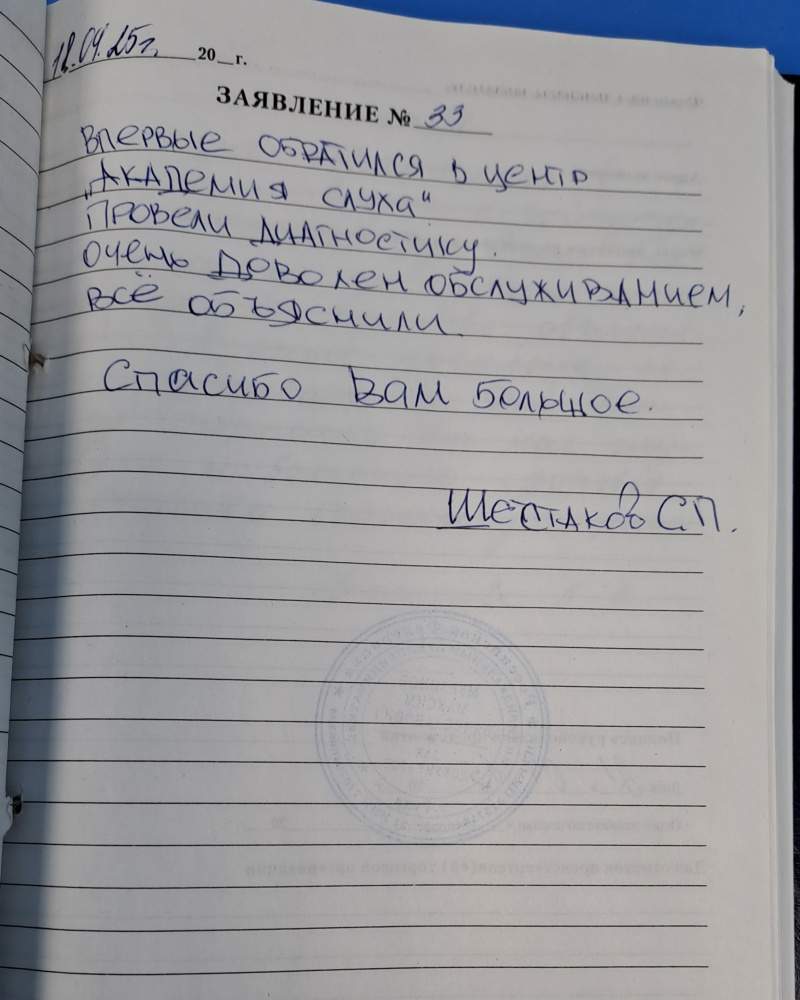 18.04.25г. 20 г.
ЗАЯВЛЕНИЕ № 33
Впервые обратился в центр
„Академия слуха“
Провели диагностику.
Очень доволен обслуживанием,
всё объяснили.
Спасибо Вам большое.
Шестаков С.П.